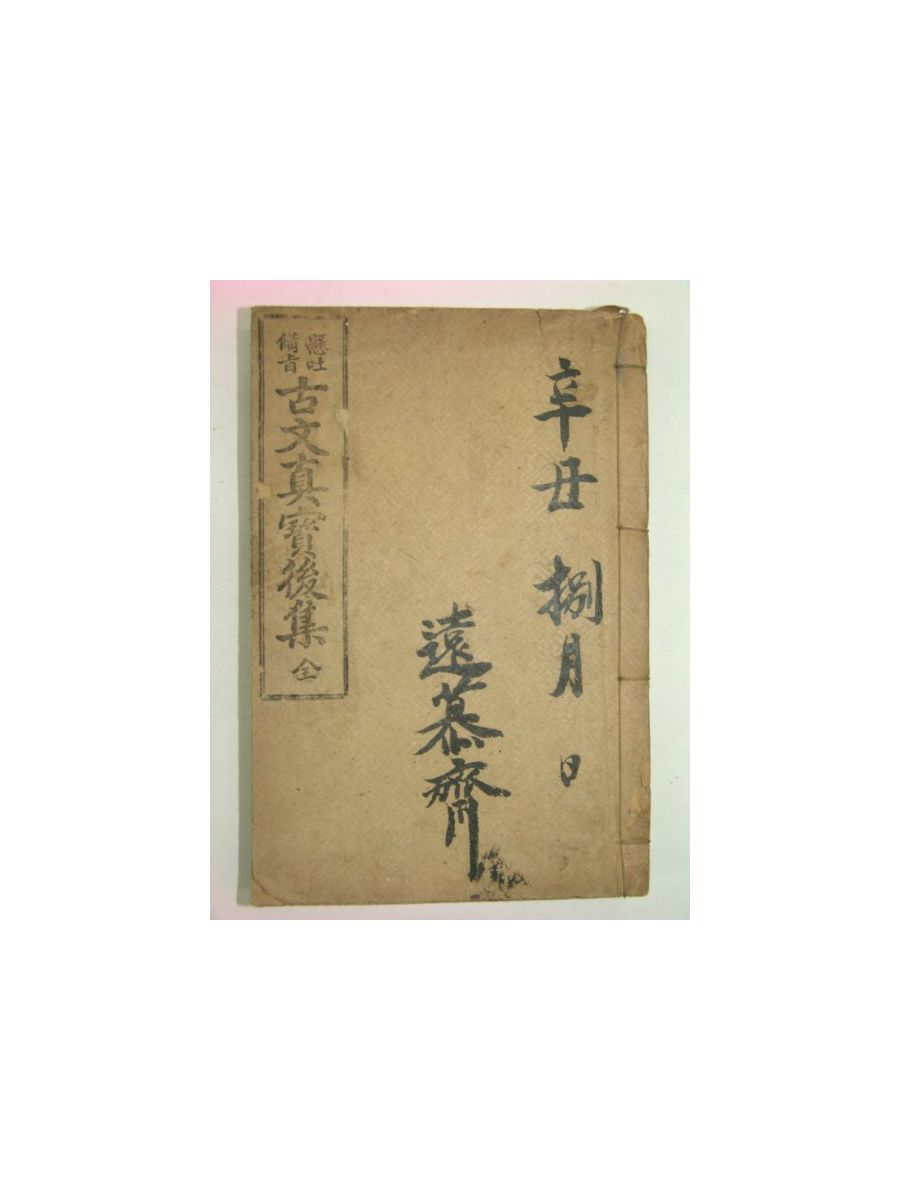 辛丑 捌月 日
遠慕齋
懸吐
備旨
古文真寶後集 全